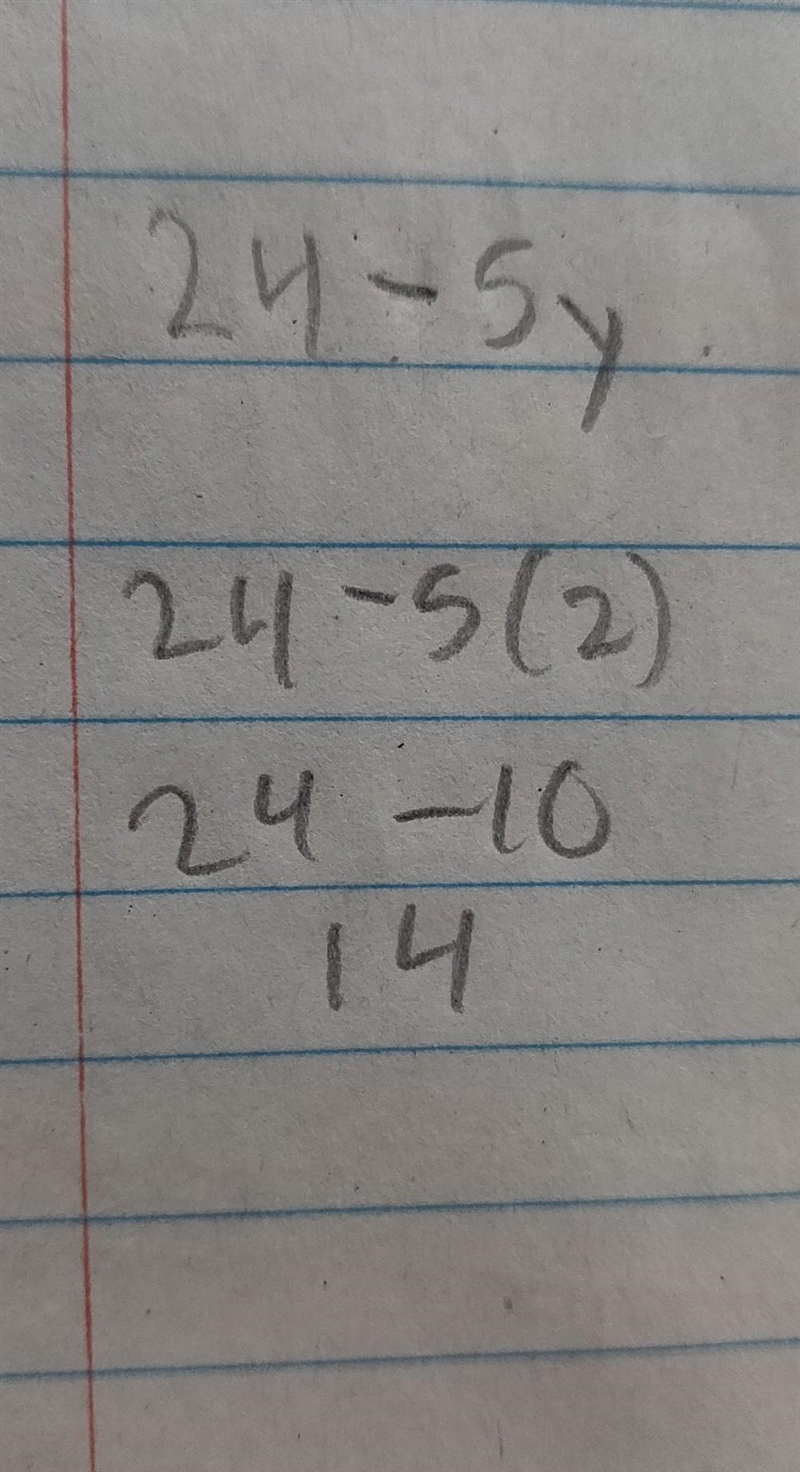 24 - 5y
24 - 5(2)
24 - 10
14